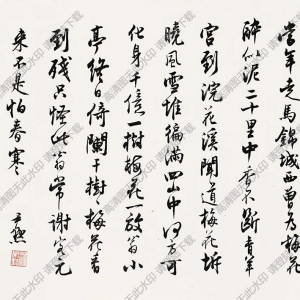 當年走馬錦城西曾為梅花
醉似泥二十里中香不斷青羊
宮到浣花溪聞道梅花坼
曉風雪堆徧滿四山中何方可
化身千億一樹梅花一放翁小
亭終日倚闌干樹樹梅花看
到殘只怪此翁常謝客元
來不是怕春寒
尹默